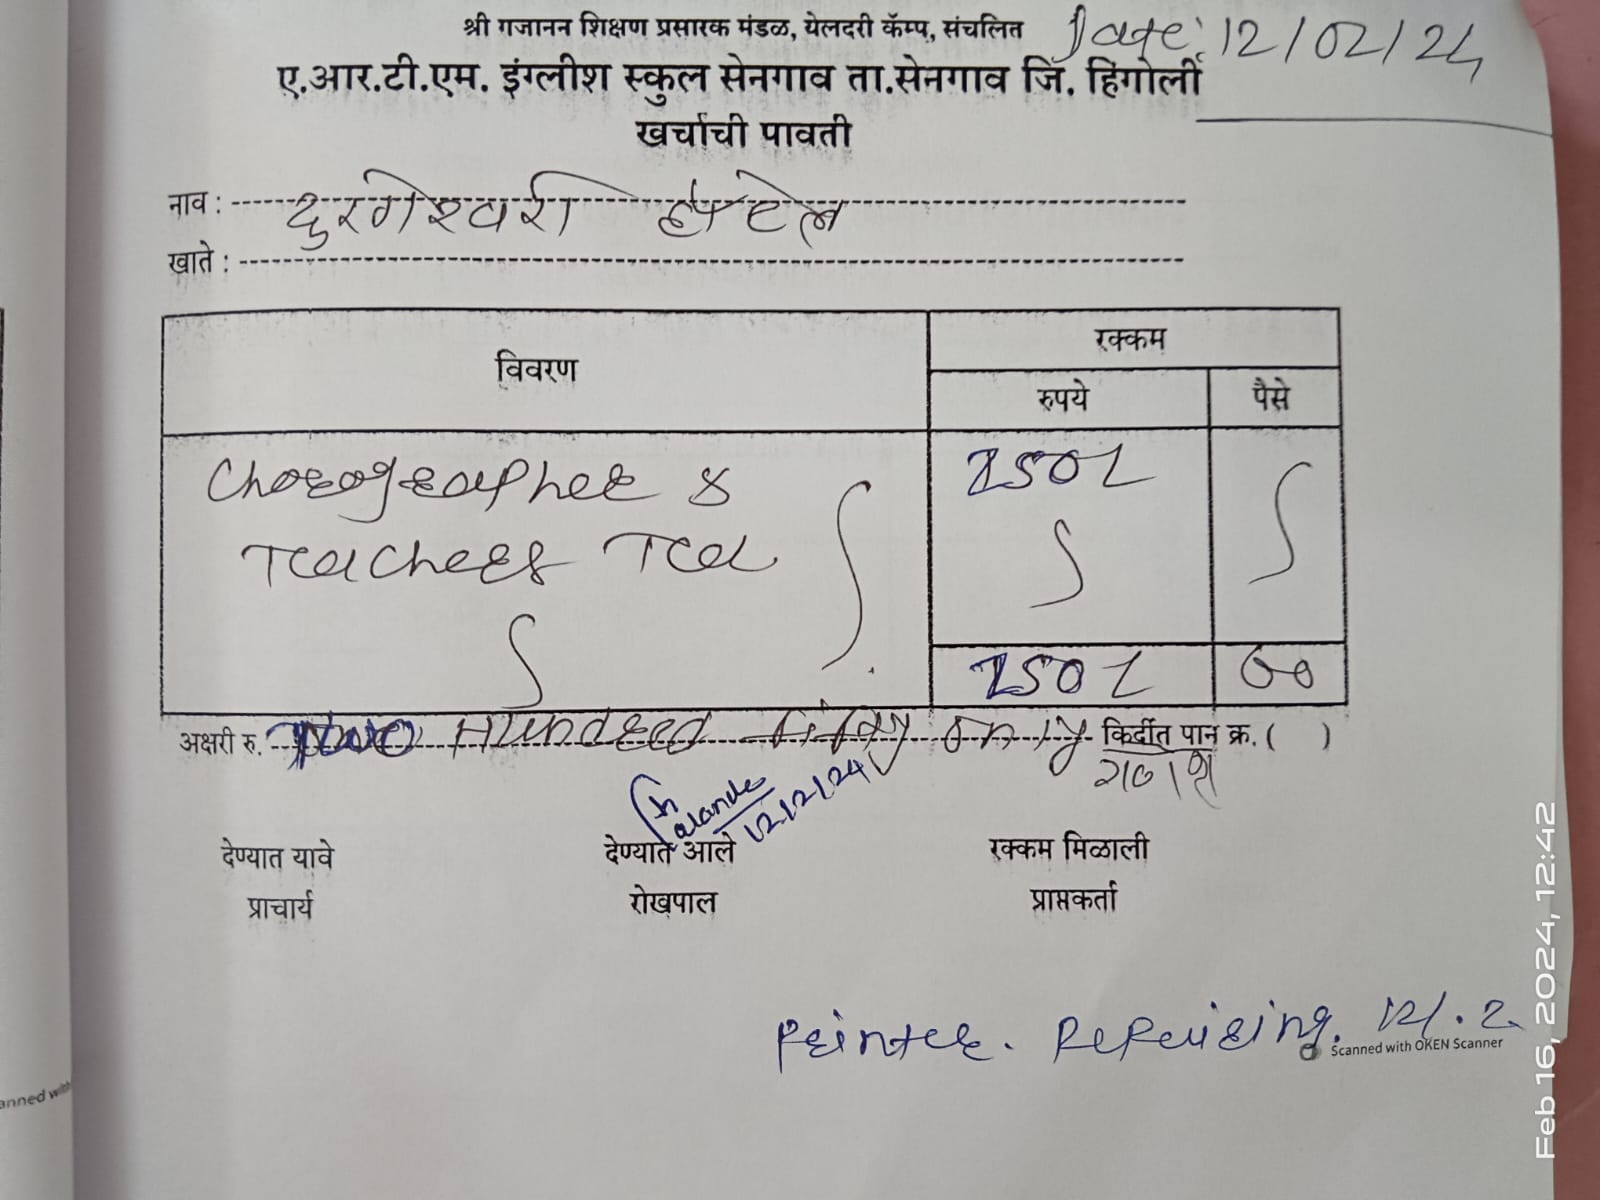 श्री गजानन शिक्षण प्रसारक मंडळ, येलदरी कॅम्प, संचलित
Date: 12/02/24
ए.आर.टी.एम. इंग्लीश स्कुल सेनगाव ता.सेनगाव जि. हिंगोली
खर्चाची पावती
नाव : दुरगेश्वरी हॉटेल
खाते :
विवरण
रक्कम
रुपये
पैसे
Chorographer &
Teachers Tea
250/-
250/-
00
अक्षरी रु. Two Hundred Fifty only किर्दीत पान क्र. ( )
12/2/24
देण्यात यावे
देण्यात आले
रक्कम मिळाली
प्राचार्य
रोखपाल
प्राप्तकर्ता
Printer.
Scanned with OKEN Scanner
anned with
Feb 16, 2024, 12:42